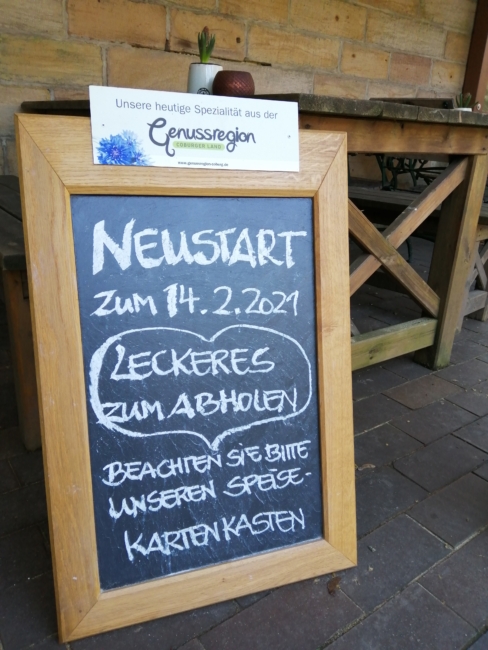 Unsere heutige Spezialität aus der
Genussregion
COBURGER LAND
www.genussregion-coburg.de
NEUSTART
ZUM 14.2.2021
LECKERES
ZUM ABHOLEN
BEACHTEN SIE BITTE
UNSEREN SPEISE-
KARTENKASTEN